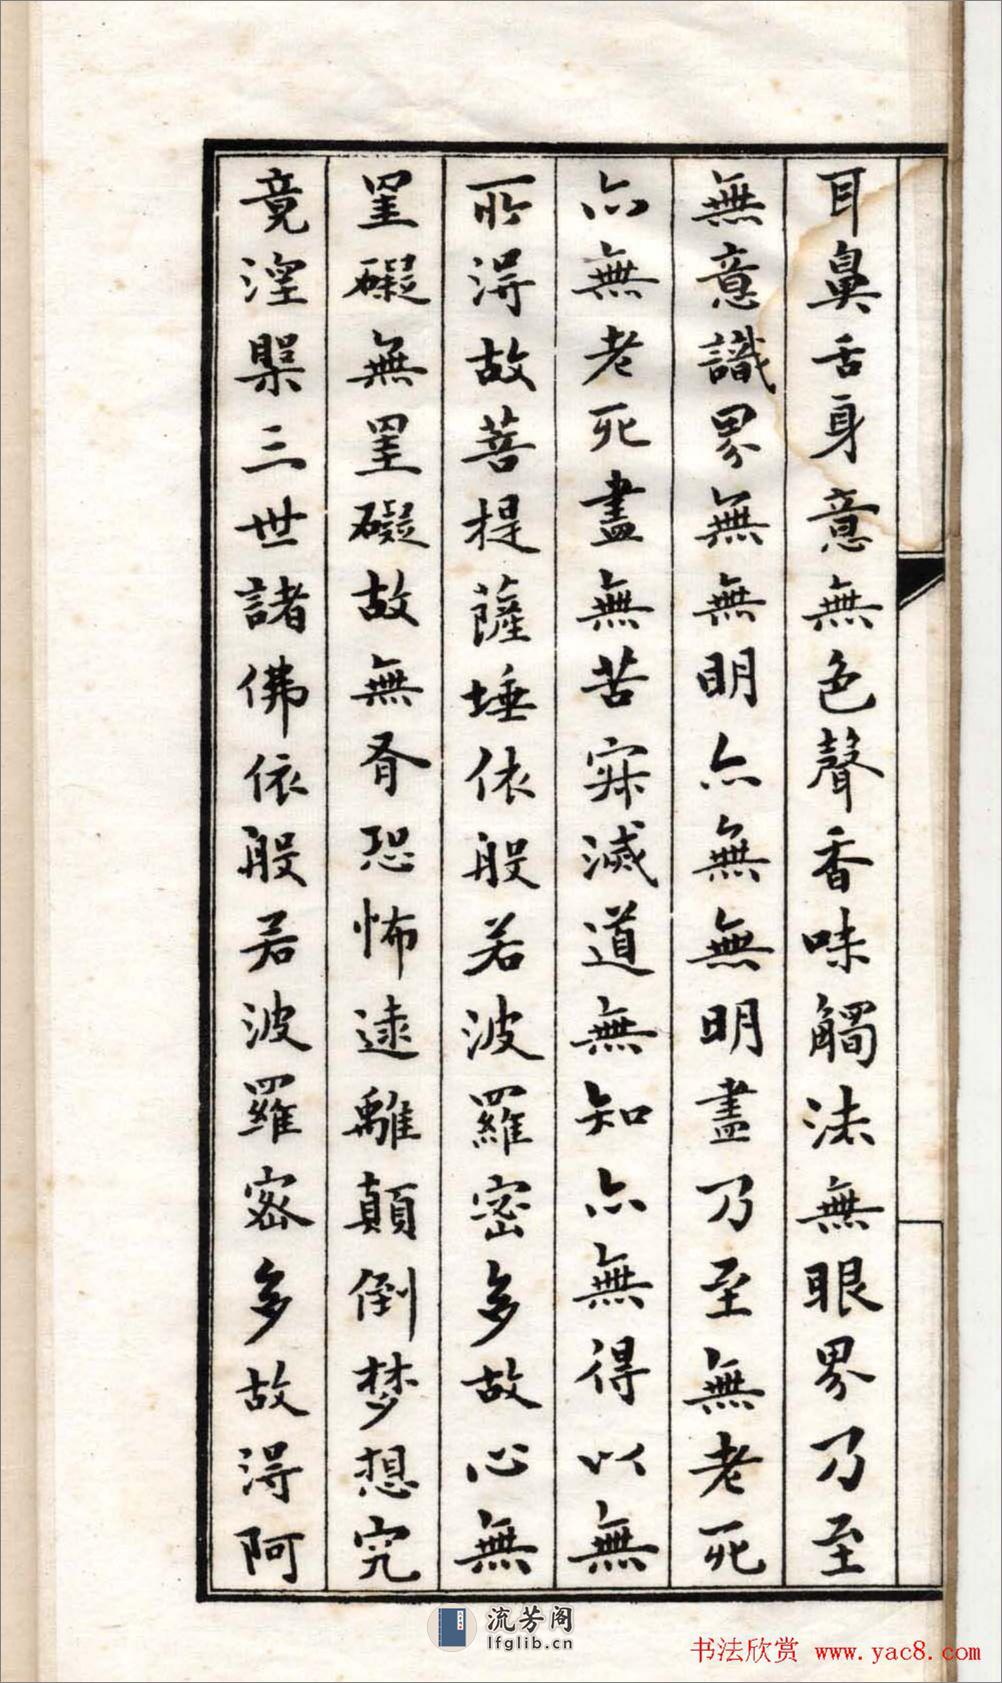 耳鼻舌身意無色聲香味觸法無眼界乃至
無意識界無無明亦無無明盡乃至無老死
亦無老死盡無苦寂滅道無知亦無得以無
所得故菩提薩埵依般若波羅密多故心無
罣礙無罣礙故無有恐怖遠離顛倒梦想究
竟涅槃三世諸佛依般若波羅密多故得阿
流芳阁
lfglib.cn
书法欣赏 www.yac8.com